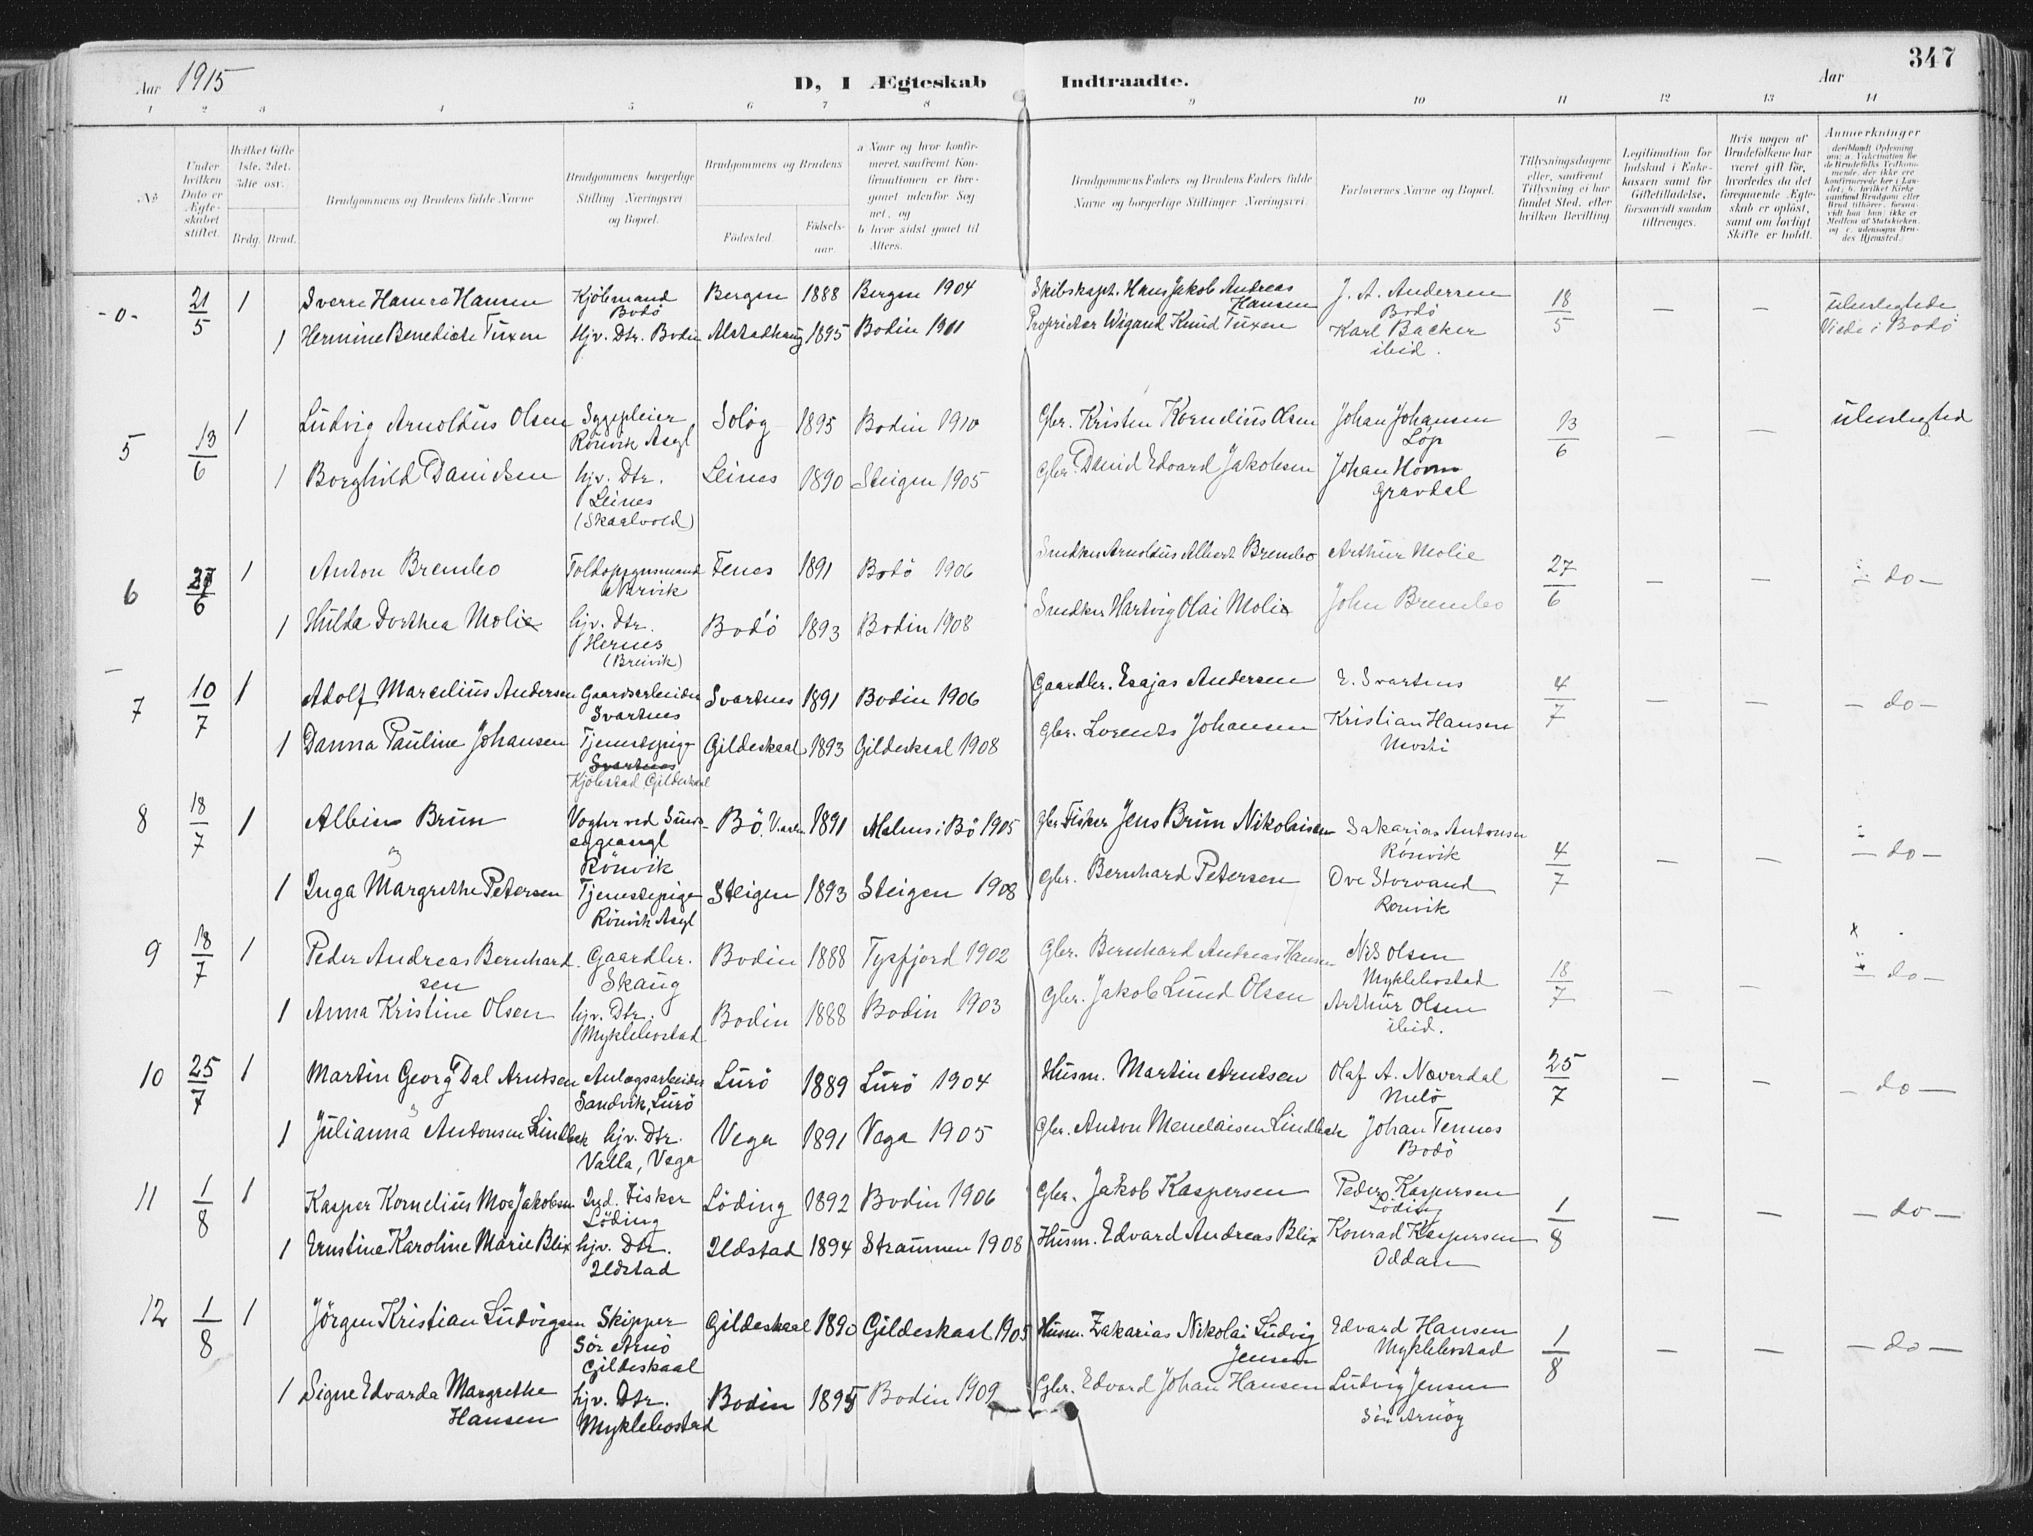 347
Aar 1915
D, I Ægteskab Indtraadte.
Aar
1 2 3 4 5 6 7 8 9 10 11 12 13 14
No
Under hvilken Dato er Ægteskabet stiftet.
Hvilket Gifte 1ste. 2det. 3die osv.
Brdg. Brud.
Brudgommens og Brudens fulde Navne
Brudgommens borgerlige Stilling Næringsvei og Bopæl.
Brudgommens og Brudens
Fødested.
Fødselsaar.
a Naar og hvor konfirmeret, saafremt Konfirmationen er foregaaet udenfor Sognet, og
b hvor sidst gaaet til Alters.
Brudgommens Faders og Brudens Faders fulde Navne og borgerlige Stillinger Næringsvei.
Forlovernes Navne og Bopæl.
Tillysningsdagene eller, saafremt Tillysning ei har fundet Sted, efter hvilken Bevilling
Legitimation for Indskud i Enkekassen samt for Giftetilladelse, forsaavidt saadan tiltrænges.
Hvis nogen af Brudefolkene har været gift før, hvorledes da det foregaaende Ægteskab er opløst, samt om lovligt Skifte er holdt.
Anmærkninger
-0- 21/5 1 Sverre Hamre Hansen Kjöbmand Bodö Bergen 1888 Bergen 1904 Skibskapt. Hans Jakob Andreas Hansen J. A. Andersen Bodö 18/5 — — ubeslegtede
1 Hermine Benedicte Tuxen Hjv. Dtr. Bodin Alstadhaug 1895 Bodin 1911 Proprietær Wigand Knud Tuxen Karl Backer ibid. Viede i Bodö
5 13/6 1 Ludvig Arnoldus Olsen Sygepleier Rönvik Asyl Solög 1895 Bodin 1910 Gbr. Kristen Kornelius Olsen Johan Johansen Löp 13/6 — — ubeslegted
1 Borghild Davidsen hjv. Dtr. Leines (Skaalvold) Leines 1890 Steigen 1905 Gbr. David Edvard Jakobsen Johan Gravdal
6 27/6 1 Anton Brembo Toldopsynsmand Narvik Fenes 1891 Bodö 1906 Snedker Arnoldus Albert Brembo Arthur Molie 27/6 — — - do -
1 Hulda Dorthea Molie hjv. Dtr. Hernes (Breivik) Bodö 1893 Bodin 1908 Snedker Hartvig Olai Molie John Brembo
7 10/7 1 Adolf Marcelius Andersen Gaardsarbeider Svartnes Svartnes 1891 Bodin 1906 Gaardbr. Esajas Andersen E. Svartnes 4/7 — — - do -
1 Danna Pauline Johansen Tjenestepige Svartnes Kjöbstad Gildeskaal Gildeskaal 1893 Gildeskaal 1908 Gbr. Lorents Johansen Kristian Hansen
8 18/7 1 Albin Brun Vogter ved Sindssygeasyl Rönvik Bö, 1891 Malnes i Bö 1905 Gbr. Fisker Jens Brun Nikolaisen Sakarias Antonsen Rönvik 4/7 — — - do -
1 Inga Margrethe Petersen Tjenestepige Rönvik Asyl Steigen 1893 Steigen 1908 Gbr. Bernhard Petersen Ove Storvand Rönvik
9 18/7 1 Peder Andreas Bernhardsen Gaardbr. Skaug Bodin 1888 Tysfjord 1902 Gbr. Bernhard Andreas Hansen Nils Olsen Myklebostad 18/7 — — - do -
1 Anna Kristine Olsen hjv. Dtr. Myklebostad Bodin 1888 Bodin 1903 Gbr. Jakob Lund Olsen Arthur Olsen ibid.
10 25/7 1 Martin Georg Dal Arntsen Anlægsarbeider Sandvik, Lurö Lurö 1889 Lurö 1904 Husm. Martin Arntsen Olaf A. Næverdal Melö 25/7 — — - do -
1 Julianna Antonsen Lindbek hjv. Dtr. Valla, Vega Vega 1891 Vega 1905 Gbr. Anton Menelaisen Lindbek Johan Tennes Bodö
11 1/8 1 Kasper Kornelius Moe Jakobsen Ind. Fisker Löding Löding 1892 Bodin 1906 Gbr. Jakob Kaspersen Peder Kaspersen Löding 1/8 — — - do -
1 Ernstine Karoline Marie Blix hjv. Dtr. Ildstad Ildstad 1894 Straumen 1908 Husm. Edvard Andreas Blix Konrad Kaspersen Oddan
12 1/8 1 Jörgen Kristian Ludvigsen Skipper Sör Arnö Gildeskaal Gildeskaal 1890 Gildeskaal 1905 Husm. Zakarias Nikolai Ludvig Jensen Edvard Hansen Myklebostad 1/8 — — - do -
1 Signe Edvarda Margrethe Hansen hjv. Dtr. Myklebostad Bodin 1895 Bodin 1909 Gbr. Edvard Johan Hansen Ludvig Jensen Sör Arnöy